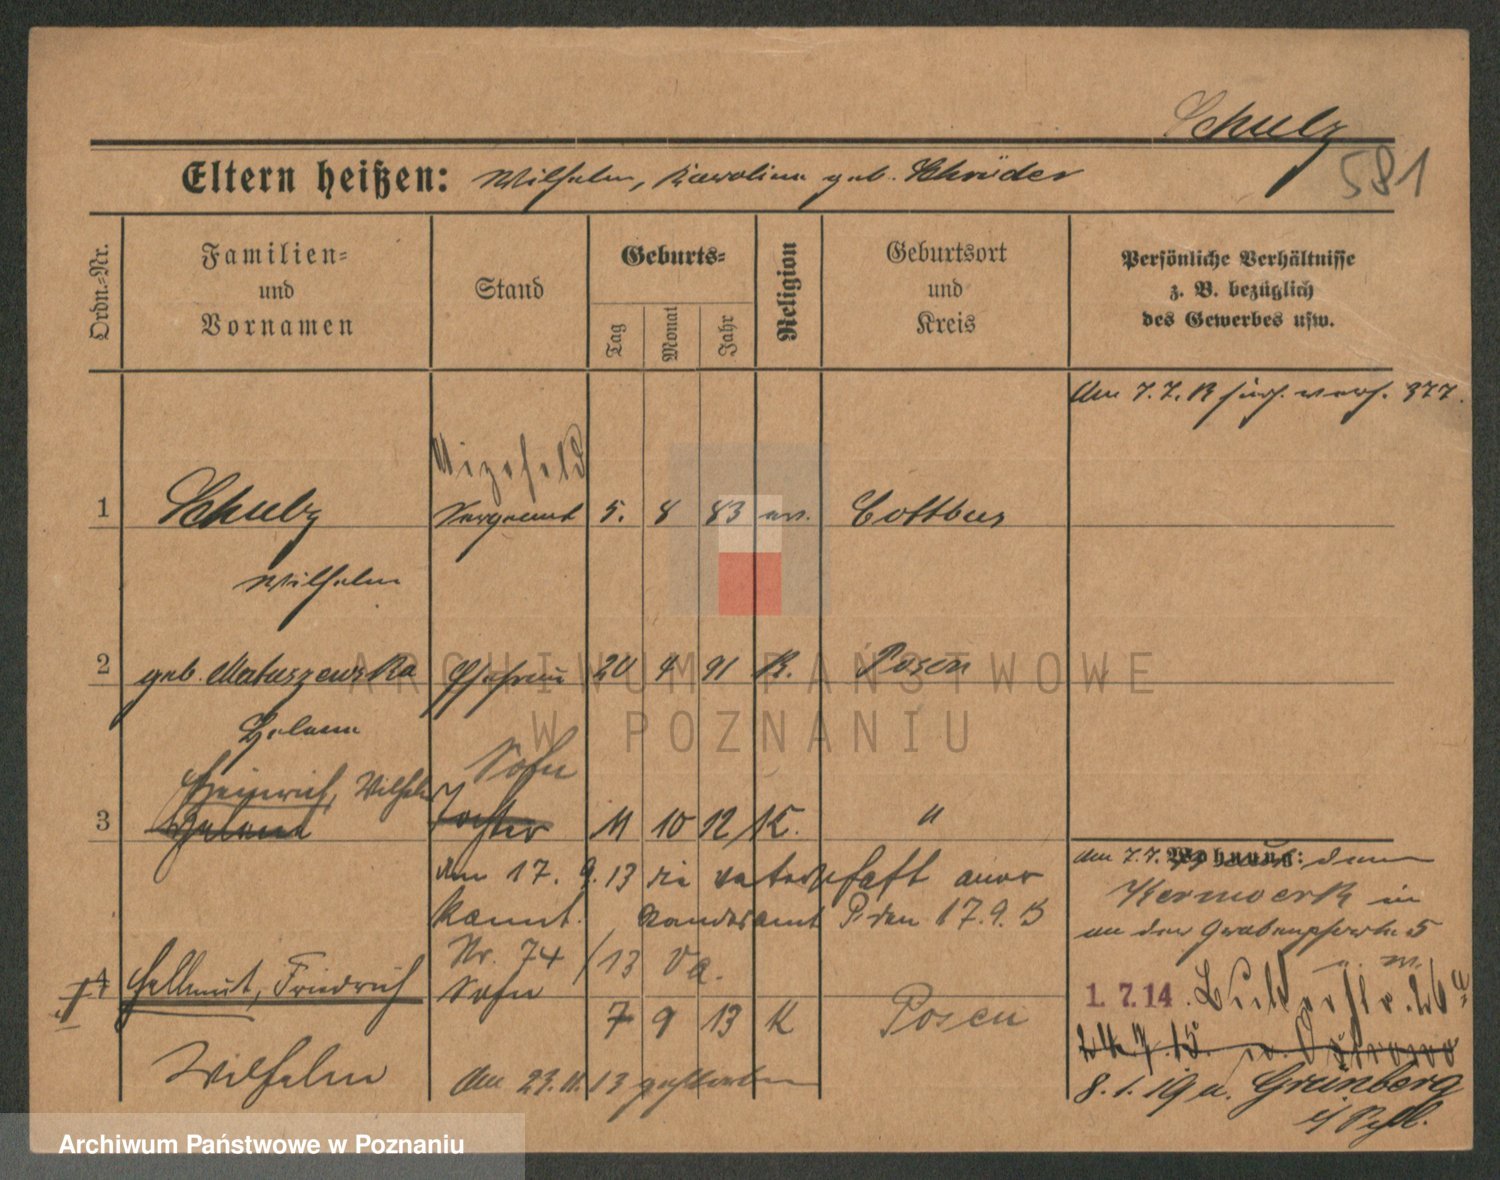 Schulz
581
Eltern heißen: Wilhelm, Karoline geb. Schröder
Ordn.-Nr.
Familien-
und
Vornamen
Stand
Geburts-
Tag
Monat
Jahr
Religion
Geburtsort
und
Kreis
Persönliche Verhältnisse
z. B. bezüglich
des Gewerbes usw.
Am 7. 7. 377.
Vizefeld
1 Schulz Sergeant 5. 8 83 ev. Cottbus
Wilhelm
2 geb. Matuszewska Ehefrau 20 4 91 K. Posen
Helene
Sohn
Heinrich, Wilhelm
3 Helene Tochter 11 10 12 K. "
am 17. 9. 13 die Vaterschaft aner
kannt. Standesamt P. den 17. 9. 13
Nr. 74/13 Va.
4 Hellmut, Friedrich Sohn
7 9 13 K Posen
Wilhelm am 23.11.13 gestorben
Wohnung:
am 7. 7.
Kernwerk in
an der Grabenpforte 5
1. 7. 14.
24. 7. 15. n. Ostrowo
8. 1. 19 n. Grünberg
ARCHIWUM PAŃSTWOWE
W POZNANIU
Archiwum Państwowe w Poznaniu